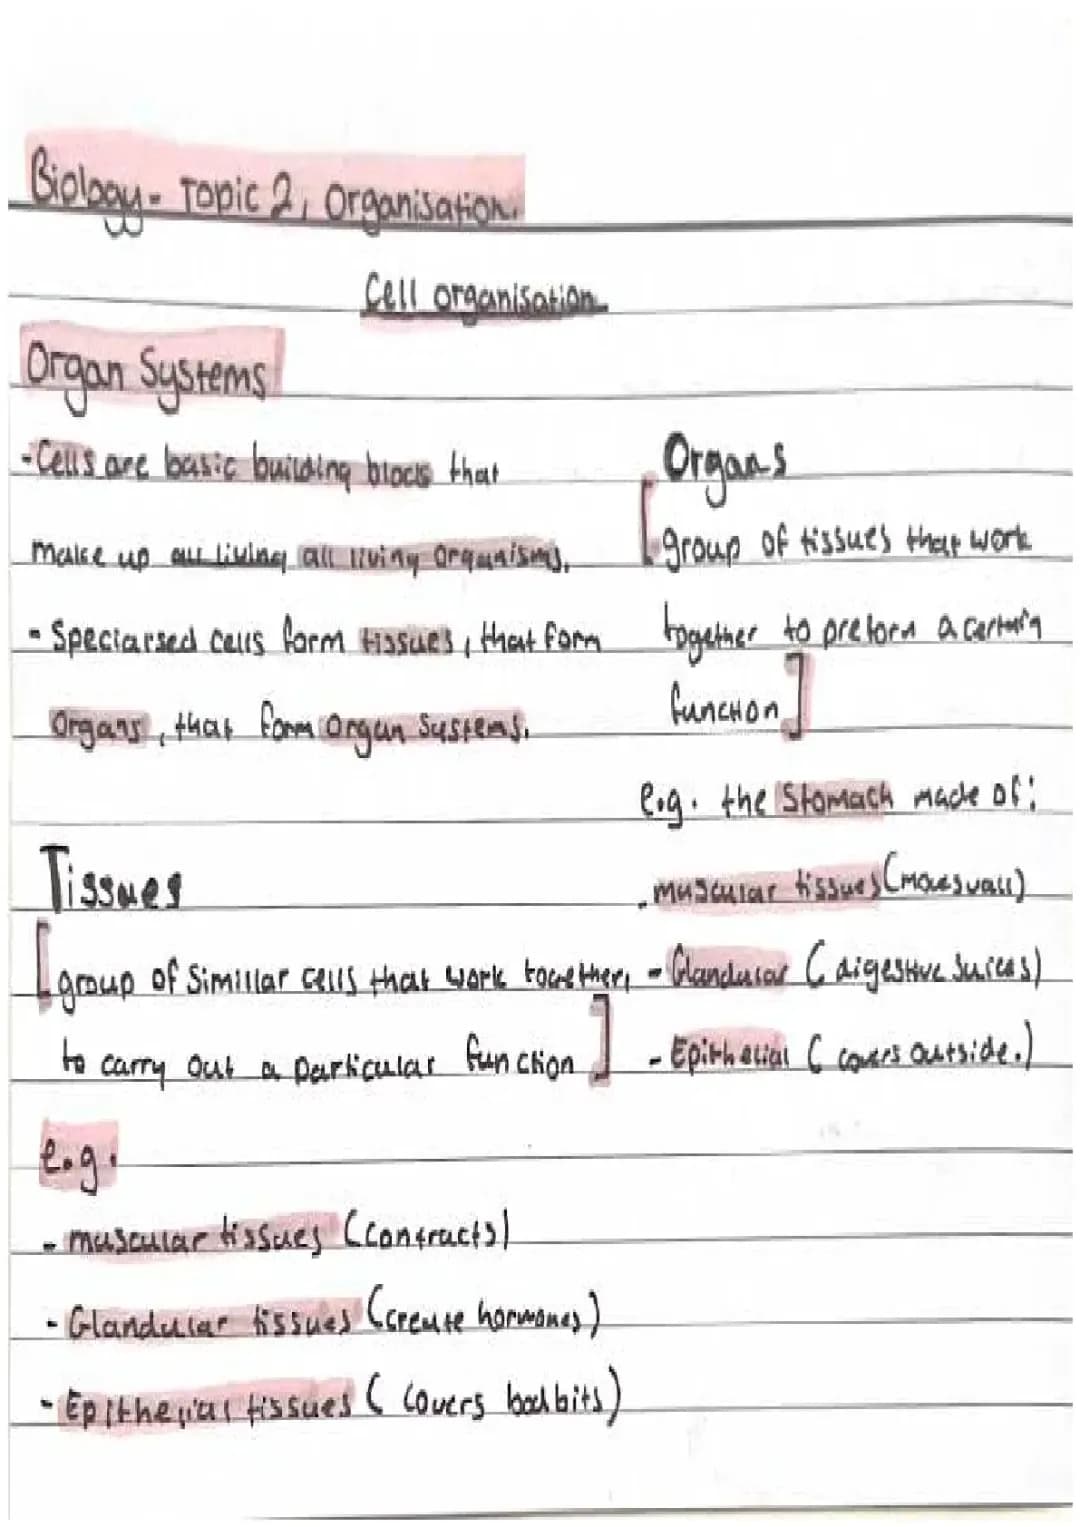 Biology - Topic 2, Organisation.
Cell organisation
Organ Systems
- Cells are basic building blocs that
make up all living all living organisms.
- Speciarsed cells form tissues, that form
Organs, that form Organ Systems.
Tissues
[group of Simillar cells that work together,
to carry out a particular function]
e.g.
- muscular tissues (contracts)
- Glandular tissues (create hormones)
- Epithelial tissues (covers bod bits)
Organs
[group of tissues that work
together to preform a certain
function]
e.g. the Stomach made of:
- muscular tissues (moves wall)
- Glandular (digestive Juices)
- Epithelial (covers outside.)